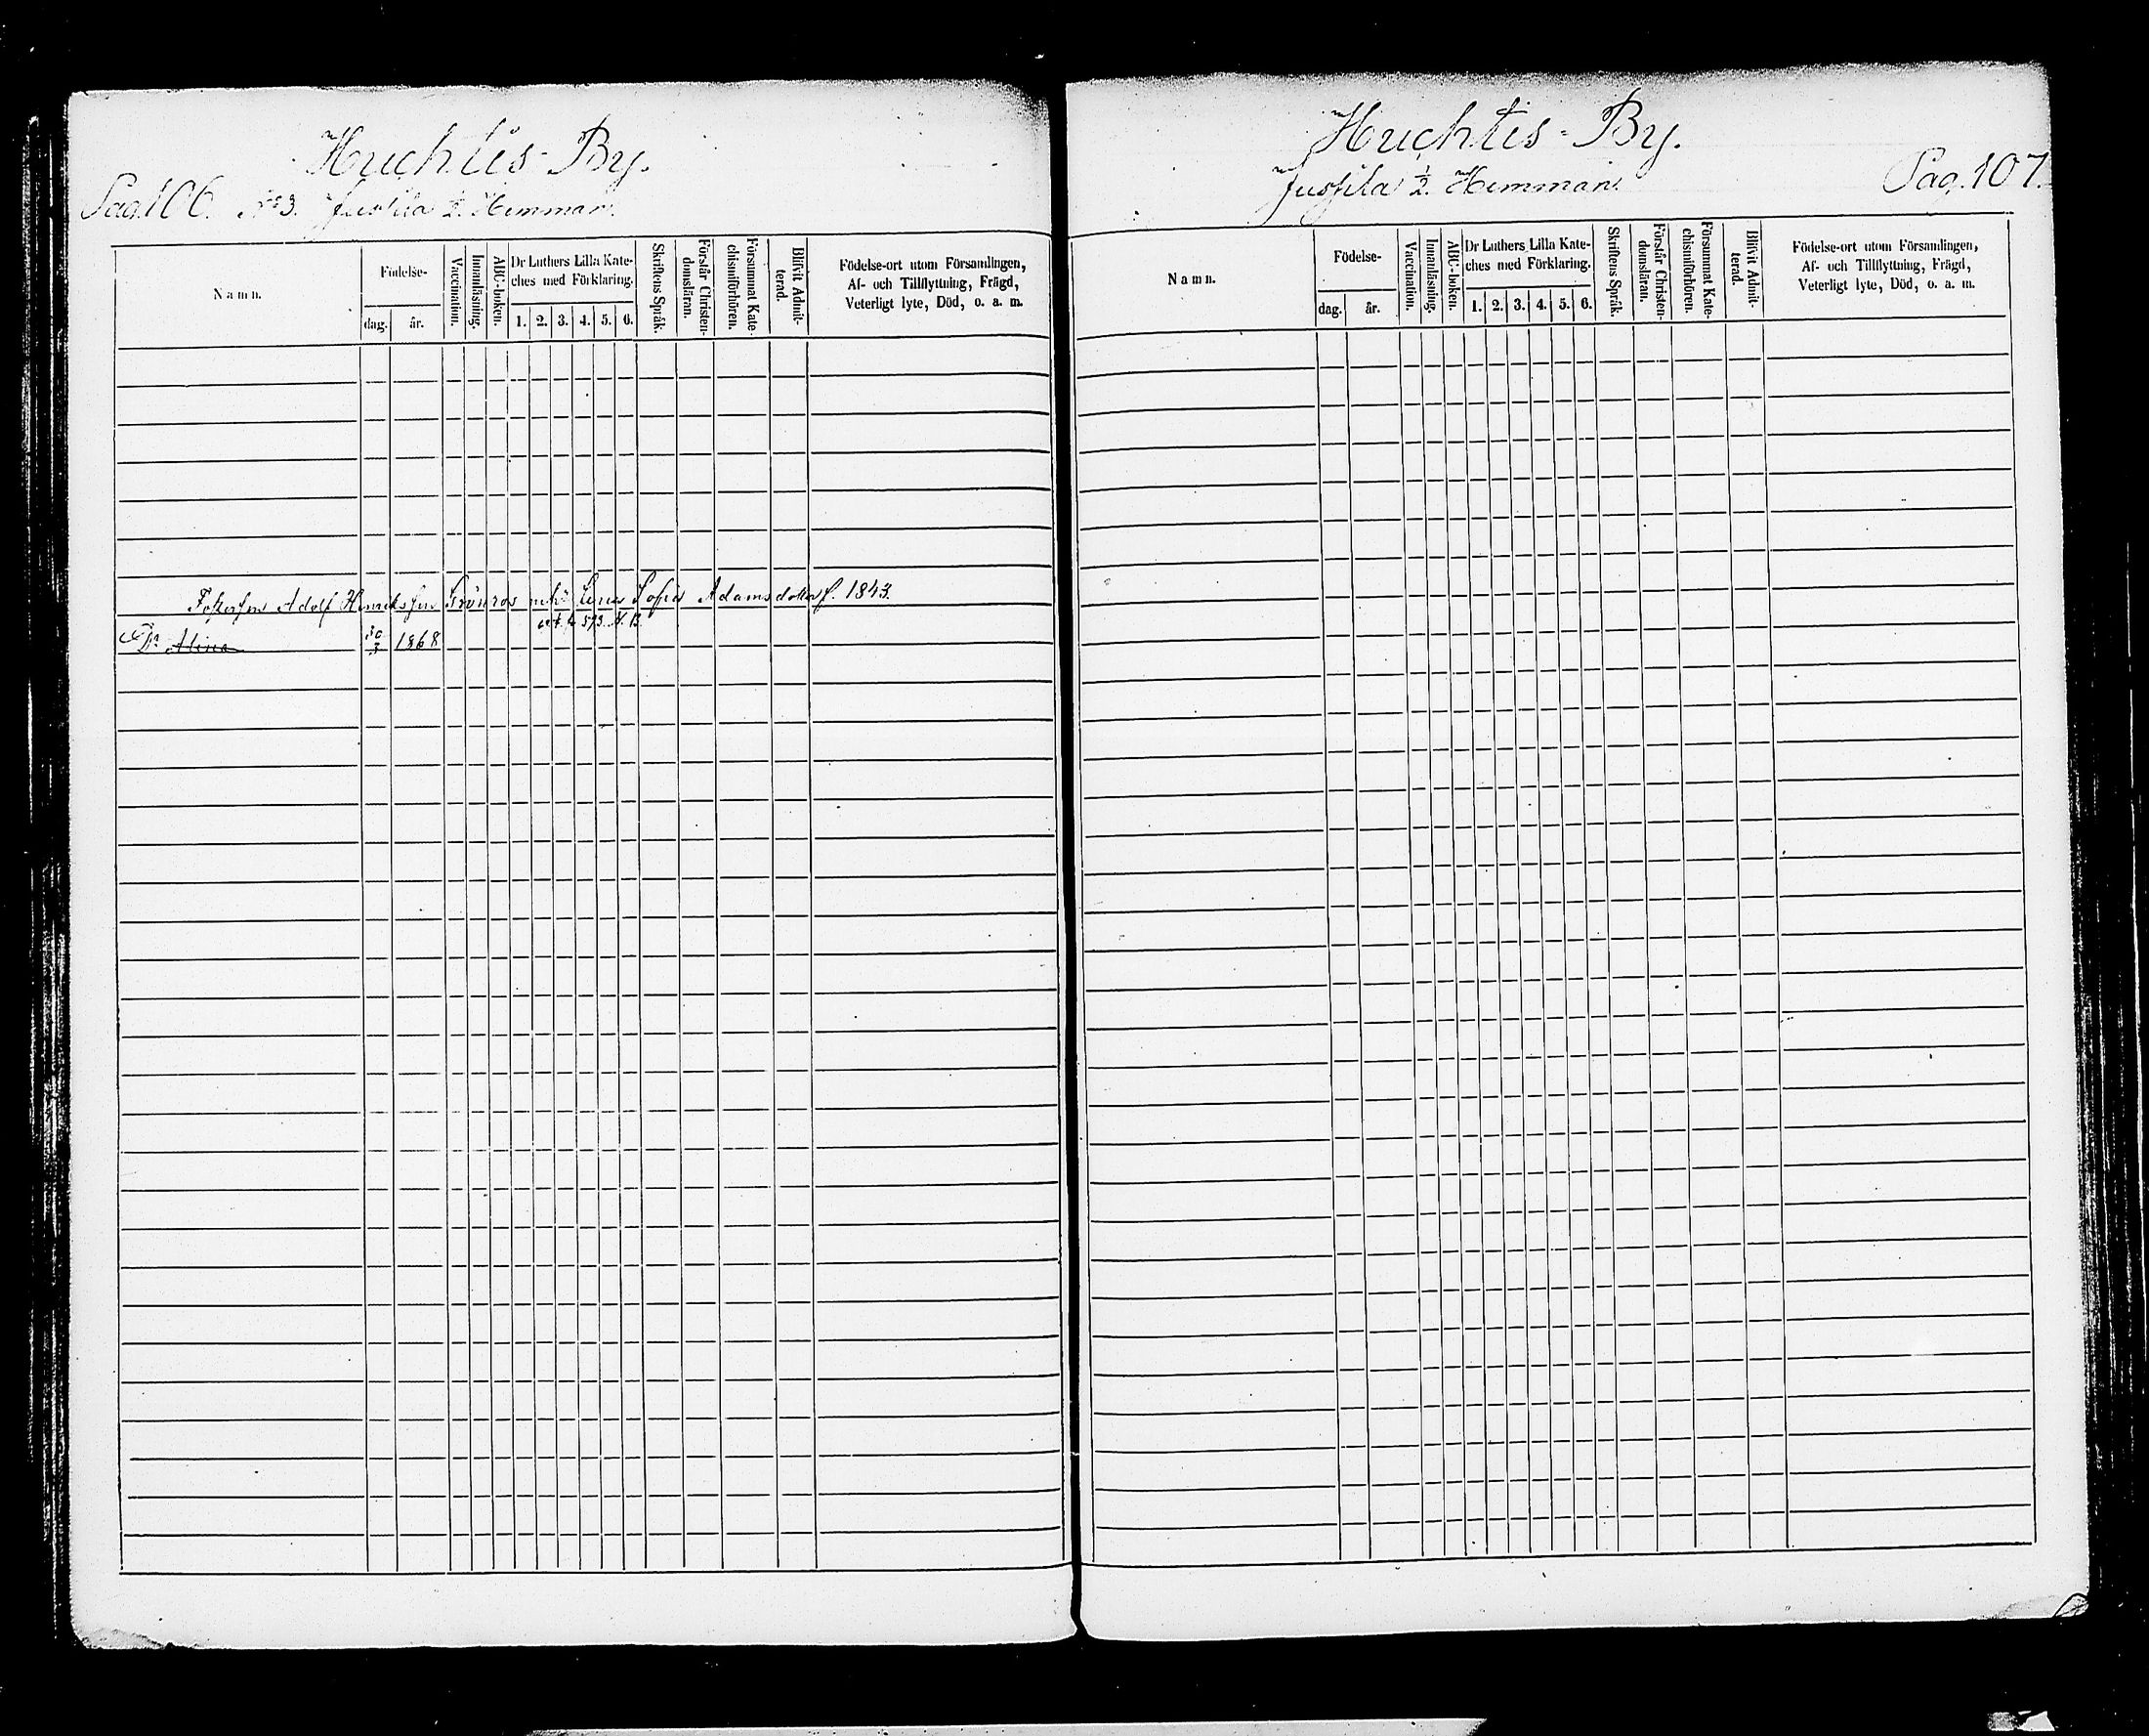 Huchtis-By.
Pag. 106. No 3. Jussila ½ Hemman.
Namn.
Födelse-
dag.
år.
Vaccination.
Innanläsning.
ABC-boken.
Dr Luthers Lilla Kate-
ches med Förklaring.
1. 2. 3. 4. 5. 6.
Skriftens Språk.
Förstår Christen-
domsläran.
Försummat Kate-
chismiförhören.
Blifvit Admit-
terad.
Födelse-ort utom Församlingen,
Af- och Tillflyttning, Frägd,
Veterligt lyte, Död, o. a. m.
Adolf Henriksson Grönros Sofia Adamsdotter f. 1843.
Dr Alina 1868
Huchtis-By.
Jussila ½ Hemman.
Pag. 107.
Namn.
Födelse-
dag.
år.
Vaccination.
Innanläsning.
ABC-boken.
Dr Luthers Lilla Kate-
ches med Förklaring.
1. 2. 3. 4. 5. 6.
Skriftens Språk.
Förstår Christen-
domsläran.
Försummat Kate-
chismiförhören.
Blifvit Admit-
terad.
Födelse-ort utom Församlingen,
Af- och Tillflyttning, Frägd,
Veterligt lyte, Död, o. a. m.